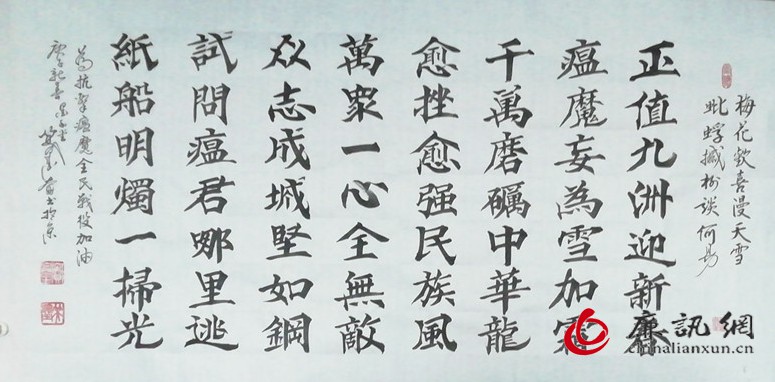 梅花欢喜漫天雪
毗蜉撼树谈何易
正值九洲迎新春
瘟魔妄為雪加霜
千萬磨礪中華龍
愈挫愈强民族風
萬衆一心全無敵
众志成城堅如鋼
試問瘟君哪里逃
紙船明燭一掃光
為抗擊瘟魔全民戰役加油
庚子
書於京
廉訊網
chinalianxun.cn